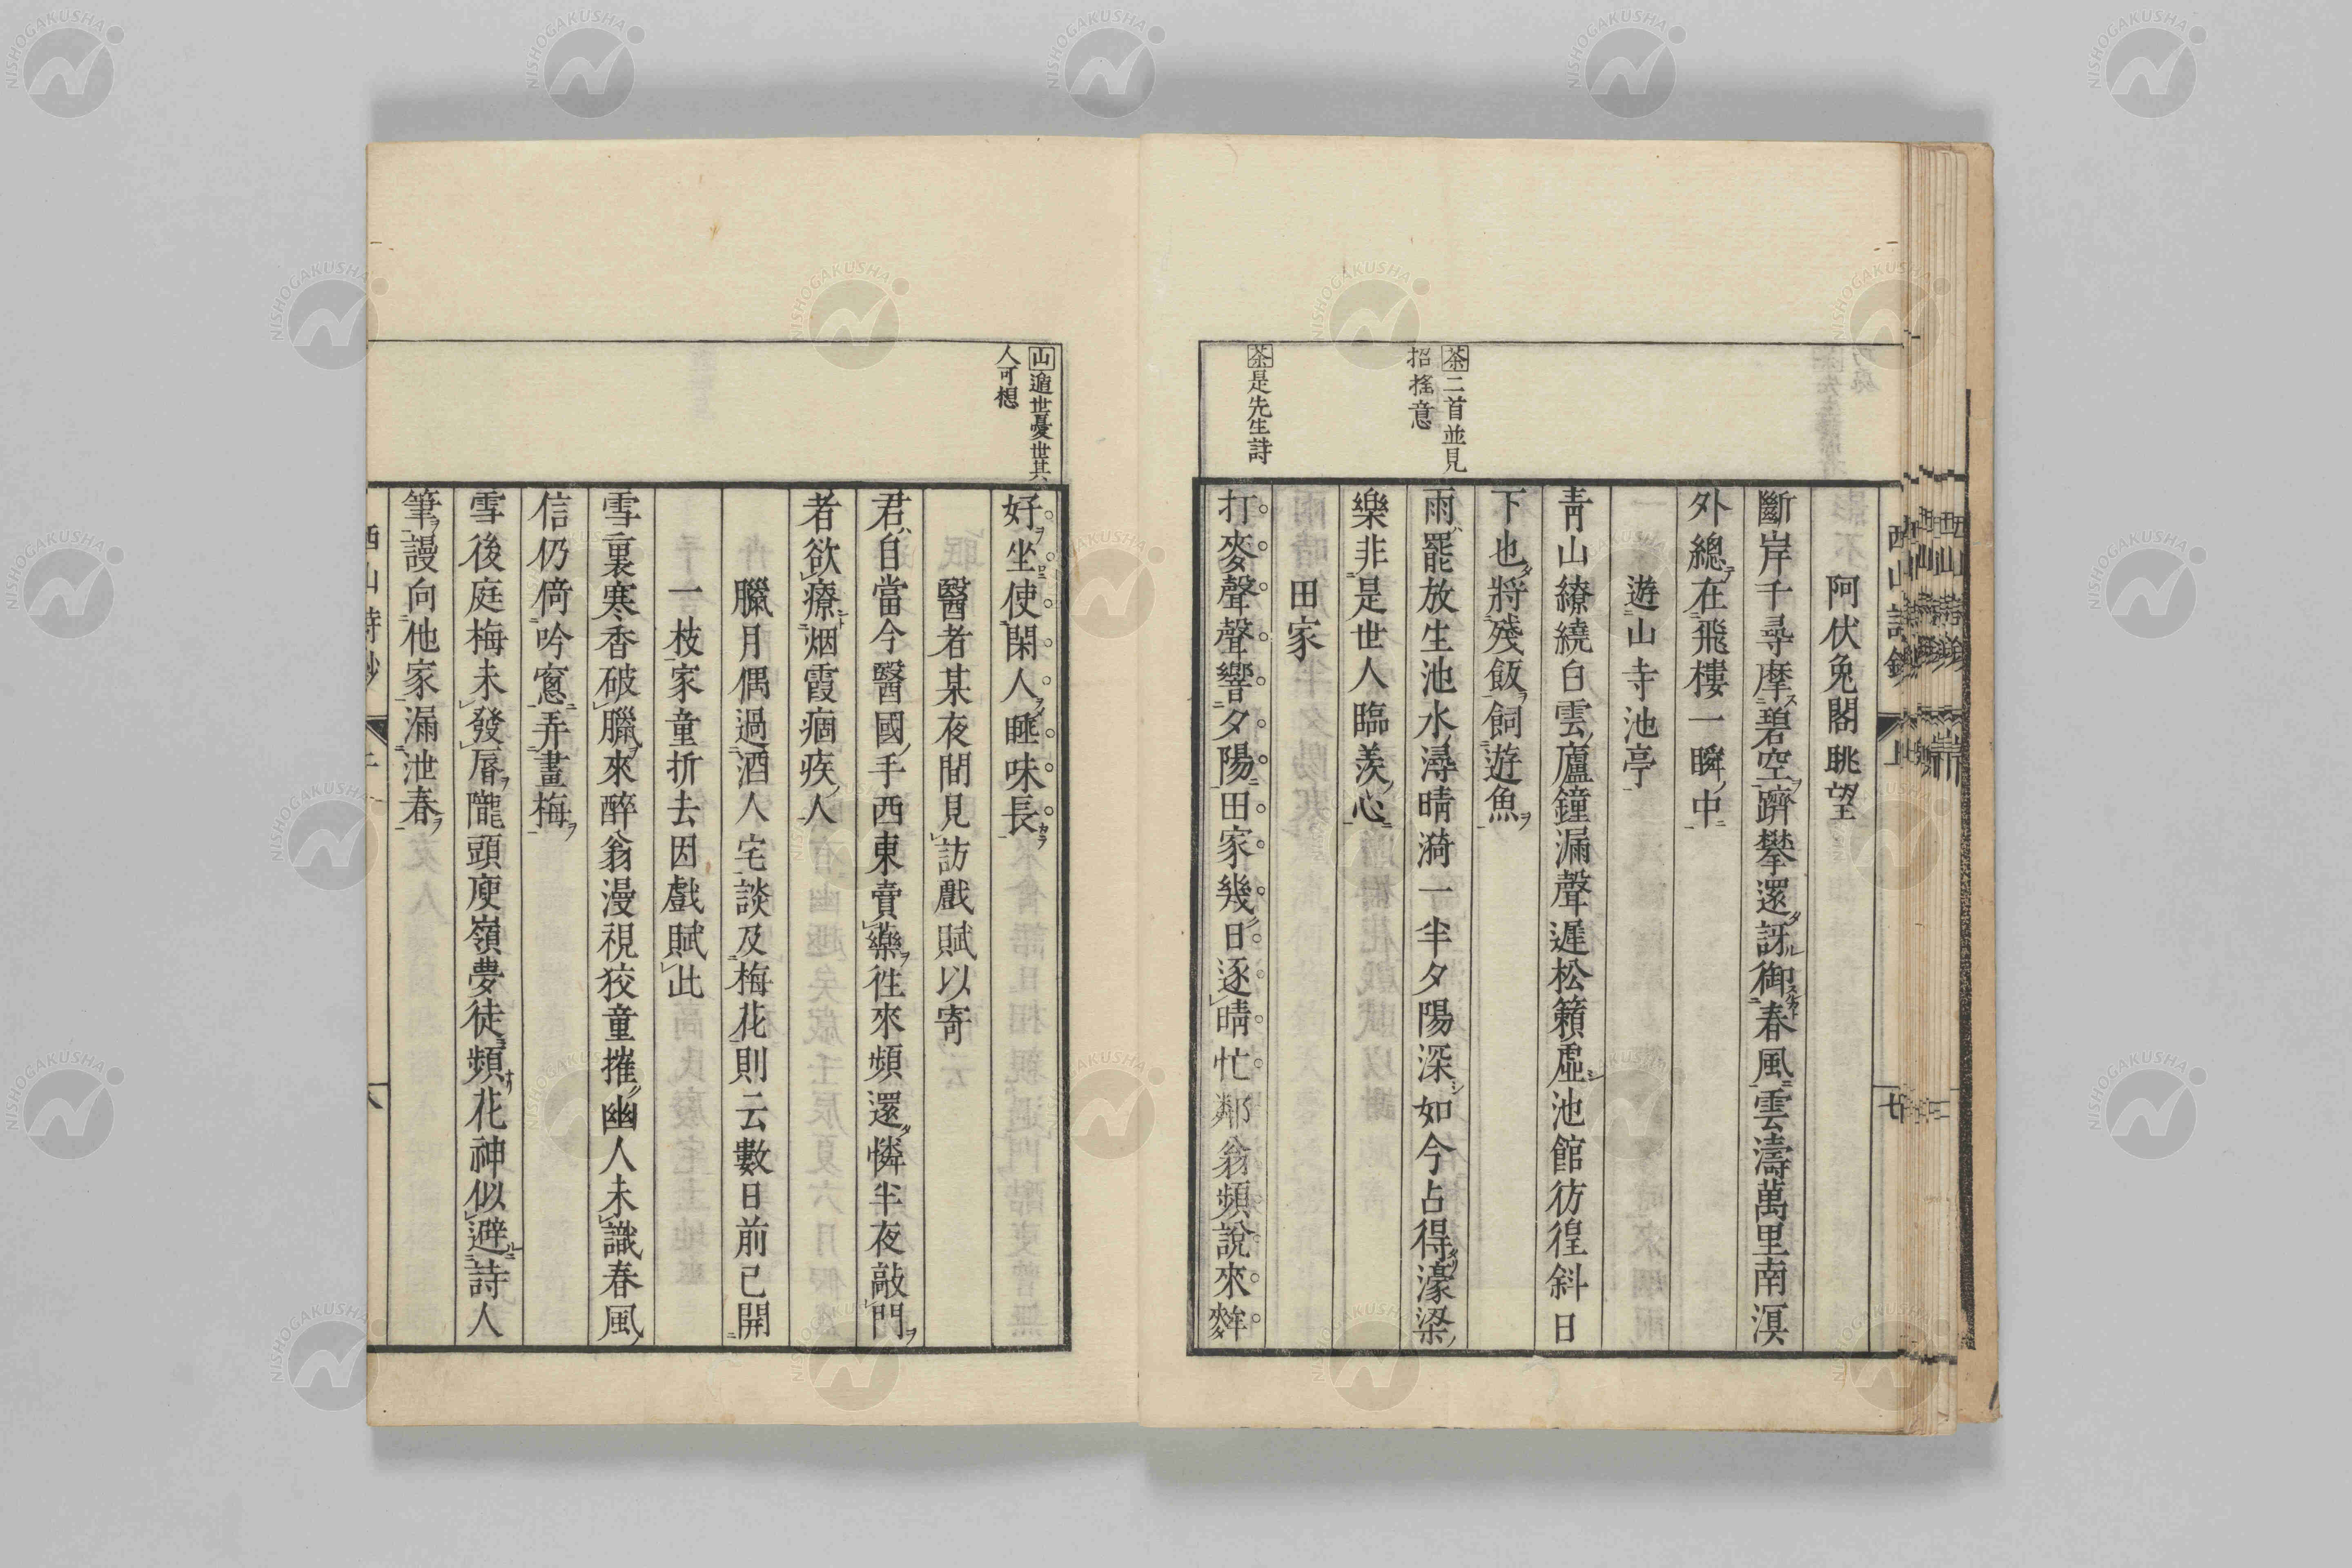 阿伏兔閣眺望
斷岸千尋摩碧空躋攀還訝御春風雲濤萬里南溟
外總在飛樓一瞬中
遊山寺池亭
青山繚繞白雲廬鐘漏聲遲松籟虛池館彷徨斜日
下也將殘飯飼遊魚
雨罷放生池水潯晴漪一半夕陽深如今占得濠梁
樂非是世人臨羨心
田家
打麥聲聲響夕陽田家幾日逐晴忙鄰翁頻說來麰
茶二首並見
招搖意
茶是先生詩
西山詩鈔
上
七
好坐使閑人睡味長
醫者某夜間見訪戲賦以寄
君自當今醫國手西東賣藥往來頻還憐半夜敲門
者欲療烟霞痼疾人
臘月偶過酒人宅談及梅花則云數日前已開
一枝家童折去因戲賦此
雪裏寒香破臘來醉翁漫視狡童摧幽人未識春風
信仍倚吟窻弄畫梅
雪後庭梅未發唇隴頭庾嶺夢徒頻花神似避詩人
筆謾向他家漏泄春
山遁世憂世其
人可想
西山詩鈔
NISHOGAKUSHA